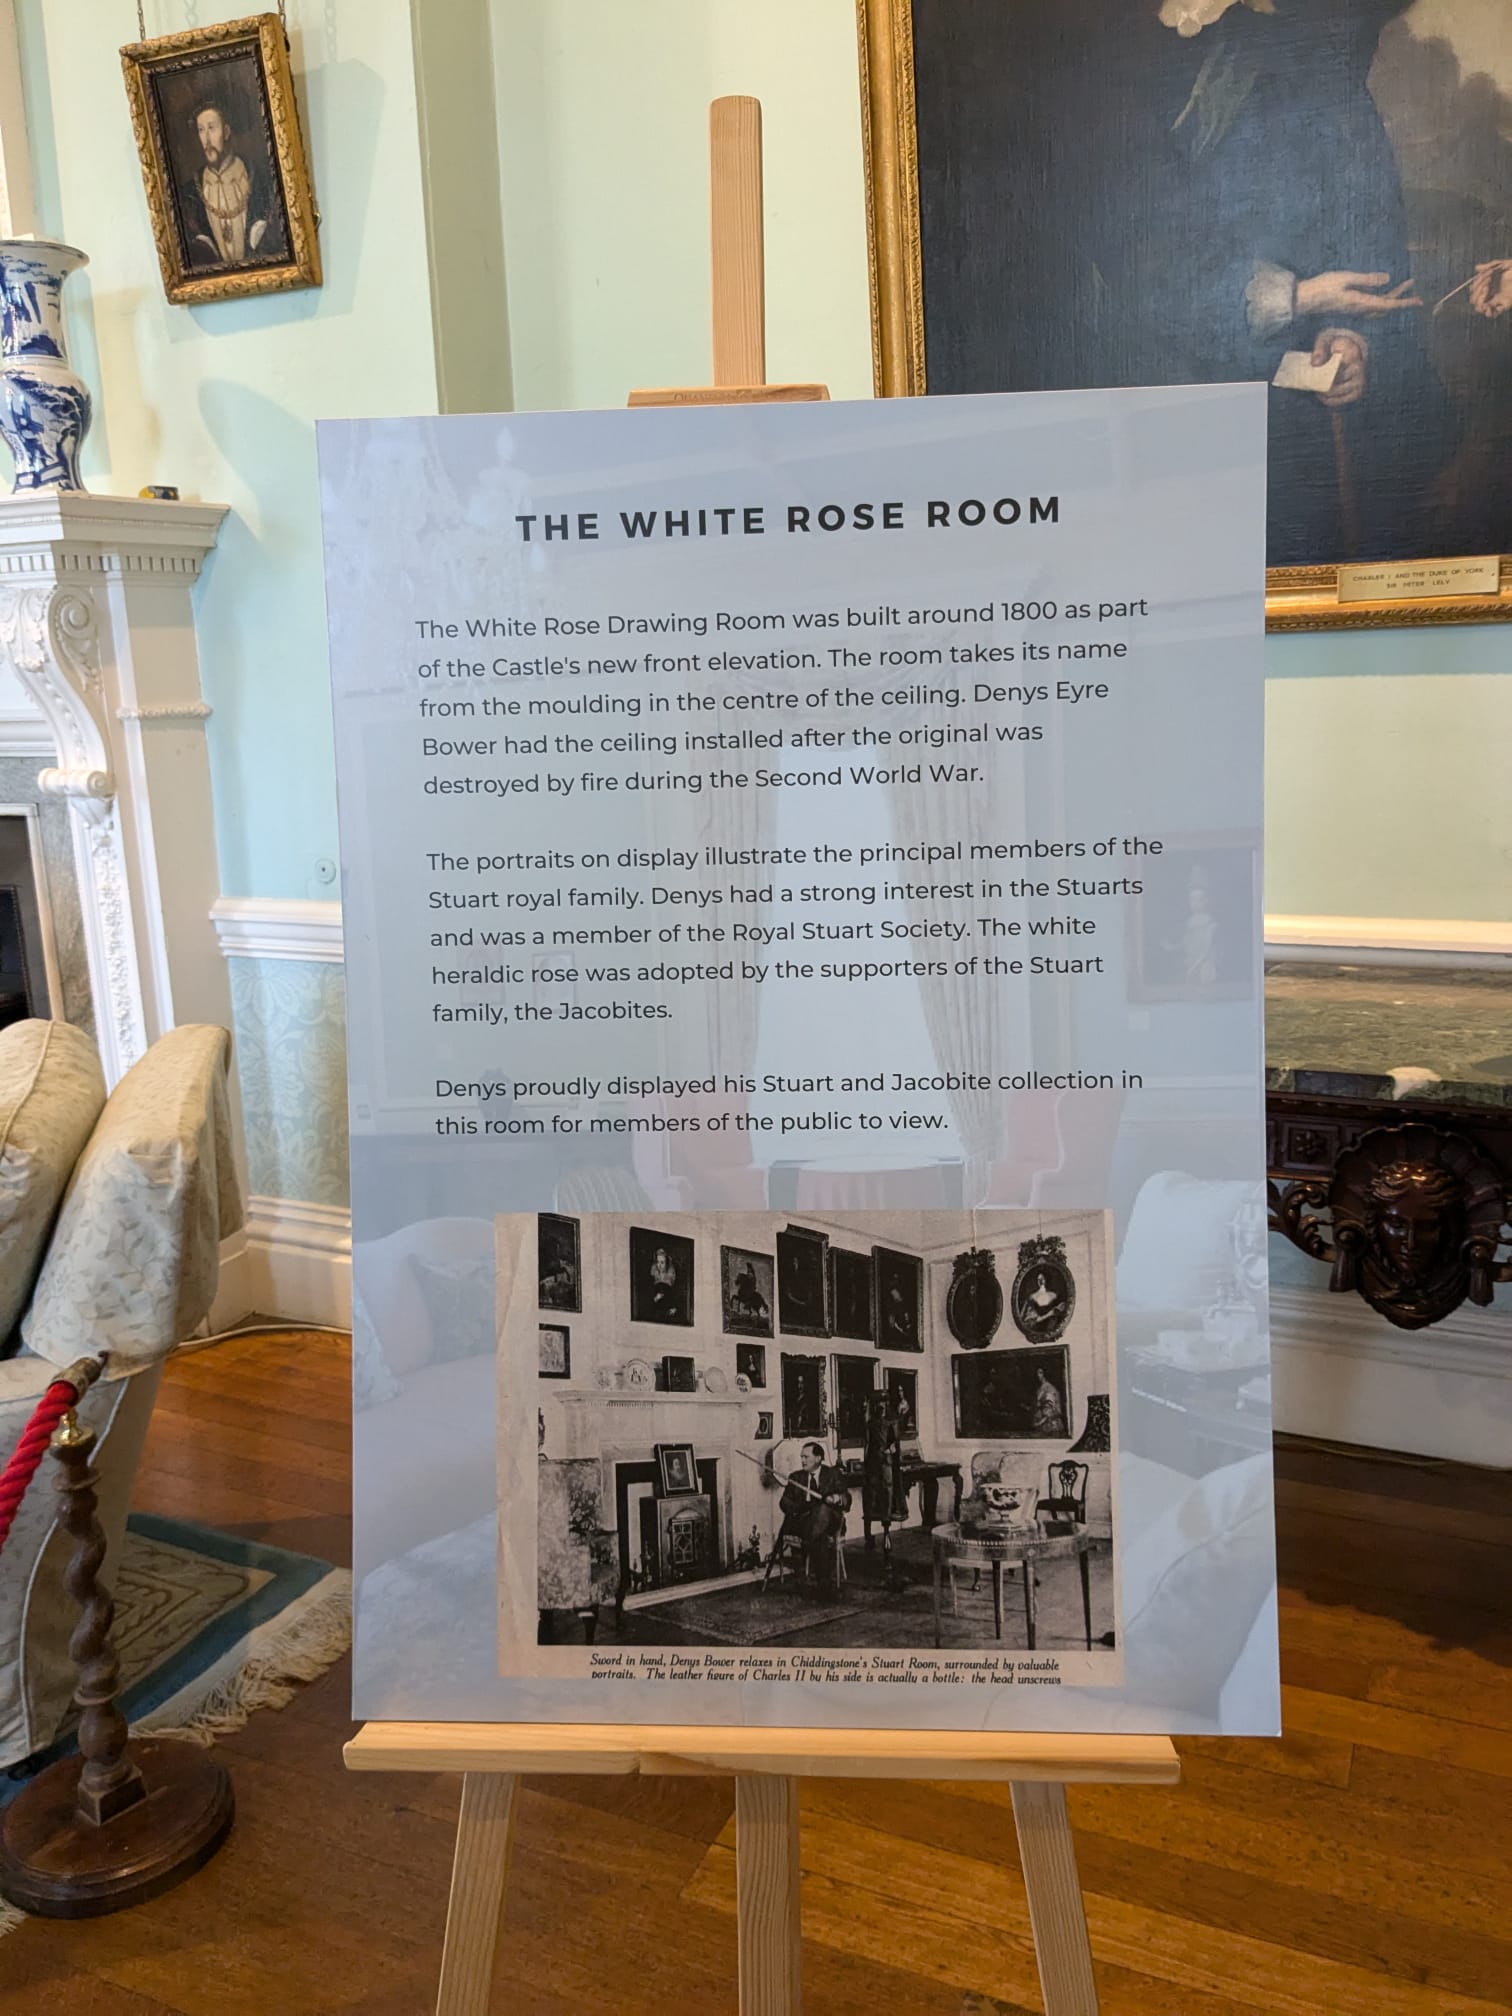 CHARLES I AND THE DUKE OF YORK
SIR PETER LELY
THE WHITE ROSE ROOM
The White Rose Drawing Room was built around 1800 as part
of the Castle's new front elevation. The room takes its name
from the moulding in the centre of the ceiling. Denys Eyre
Bower had the ceiling installed after the original was
destroyed by fire during the Second World War.
The portraits on display illustrate the principal members of the
Stuart royal family. Denys had a strong interest in the Stuarts
and was a member of the Royal Stuart Society. The white
heraldic rose was adopted by the supporters of the Stuart
family, the Jacobites.
Denys proudly displayed his Stuart and Jacobite collection in
this room for members of the public to view.
Sword in hand, Denys Bower relaxes in Chiddingstone's Stuart Room, surrounded by valuable
portraits. The leather figure of Charles II by his side is actually a bottle: the head unscrews